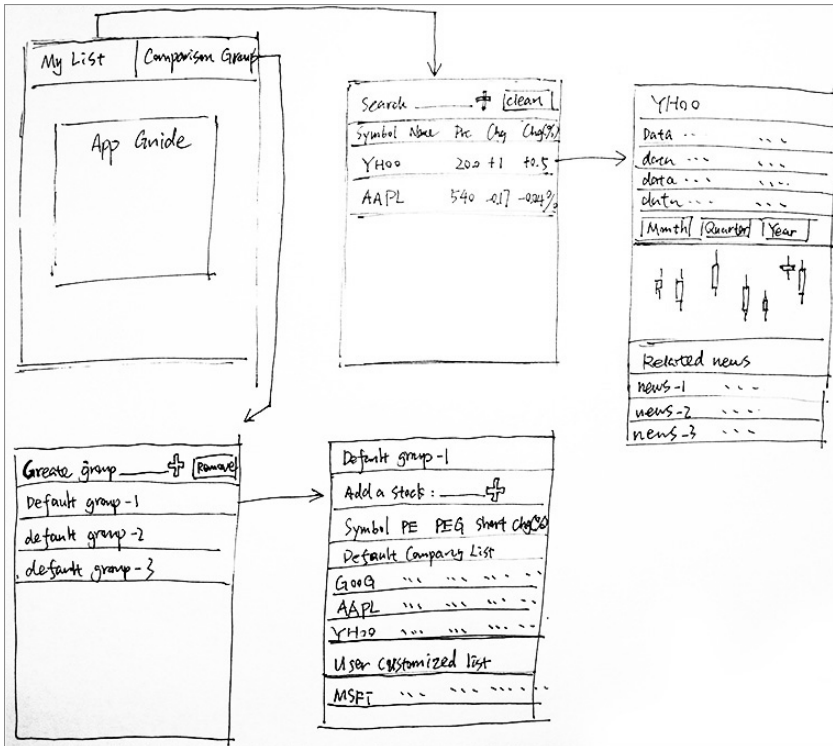 My List Comparison Group
App Guide
Search clean
Symbol Name Prc Chg Chg(%)
YHOO 200 +1 +0.5
AAPL 540 -0.17 -0.04%
YHOO
Data ... ...
data ... ...
data ... ...
data ... ...
Month Quarter Year
Related news
news-1 ...
news-2 ...
news-3 ...
Greate group Remove
Default group-1
default group-2
default group-3
Default group-1
Add a stock:
Symbol PE PEG Short Chg(%)
Default Company List
GOOG ... ... ... ...
AAPL ... ... ... ...
YHOO ... ... ... ...
User customized list
MSFT ... ... ... ...